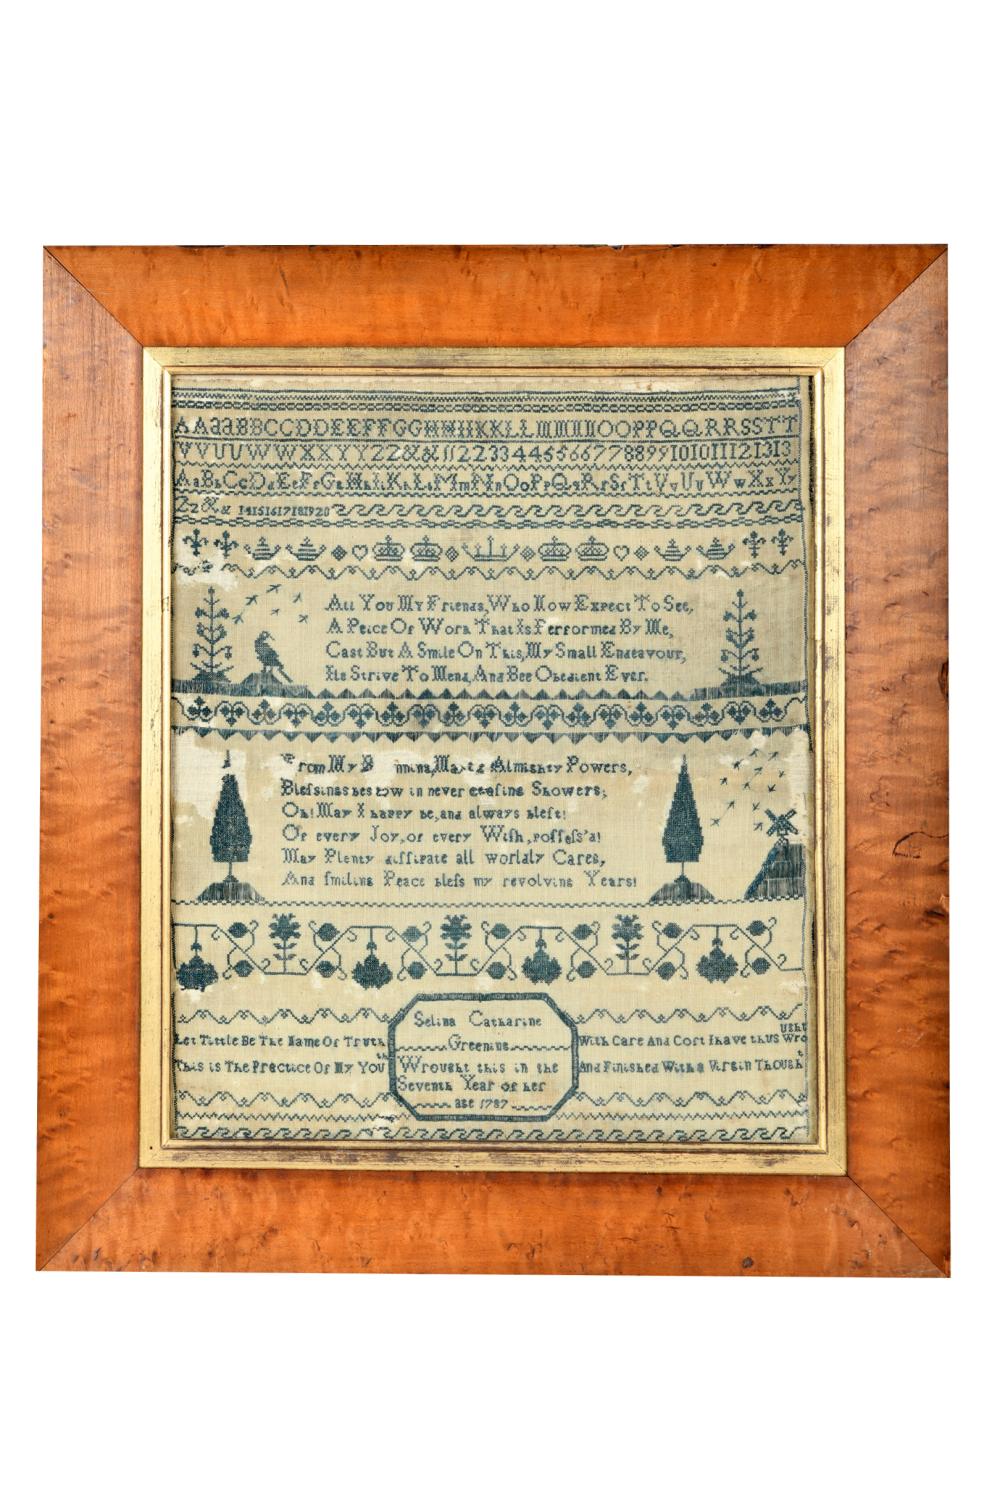 AAaaBBCCDDEEFFGGHHIIKKLLMMNNOOPPQQRRSSTT
VVUUWWXXYYZZ&& 11223344556677889910101112121313
AaBbCcDdEeFfGgHhIiKkLlMmNnOoPpQqRrSsTtVvUuWwXxYy
Zz&& 14151617181920
All You My Friends, Who Now Expect To See,
A Peice Of Work That Is Performed By Me,
Cast But A Smile On This, My Small Endeavour,
Ile Strive To Mend, And Bee Obedient Ever.
From My Almighty Powers,
Blefsings bestow in never ceasing Showers;
Oh! May I happy be, and always blest!
Of every Joy, of every Wiſh, poſſeſs'd!
May Plenty diſſipate all worldly Cares,
And ſmiling Peace bleſs my revolving Years!
Let Tittle Be The Name Of Truth
This is The Practice Of My Youth
Selina Catharine
Greening
Wrought this in the
Seventh Year of her
age 1787
With Care And Cost I have thus Wrought
And Finished With a Virgin Thought